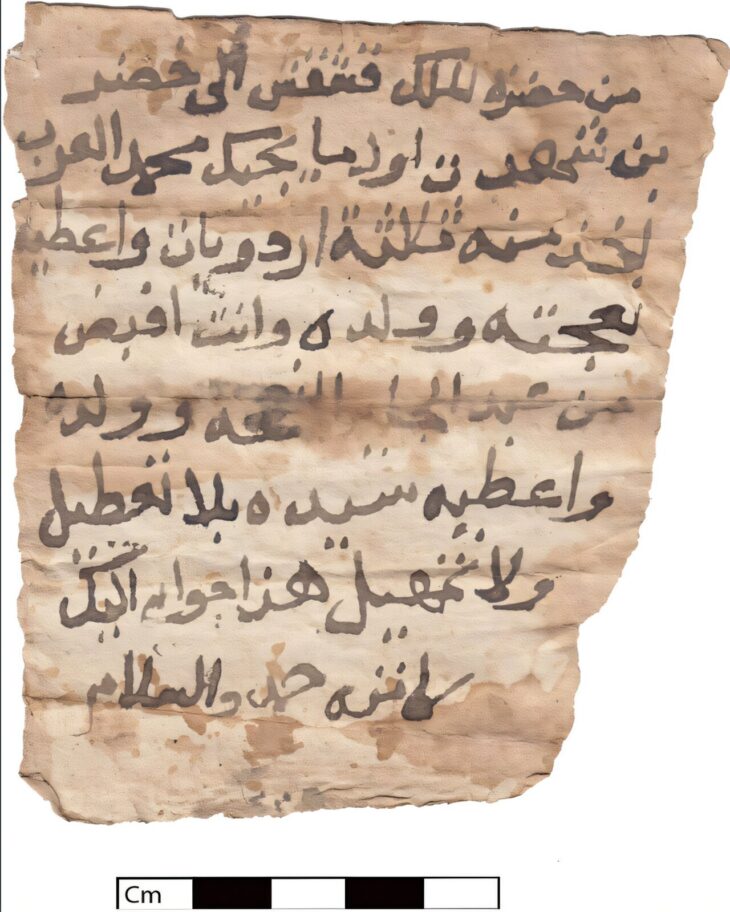 من حضرة الملك قشقش الى خضر
بن شهدت اول ما يجيك محمد العرب
لخذ منه ثلاثة اردويات واعطيه
نعجته وولده وانت اقبض
من عبد الجابر النعجه وولده
واعطيه سيده بلا تعطيل
ولا تمهيل هذا جوابي اليك
لا تزيد حد والسلام